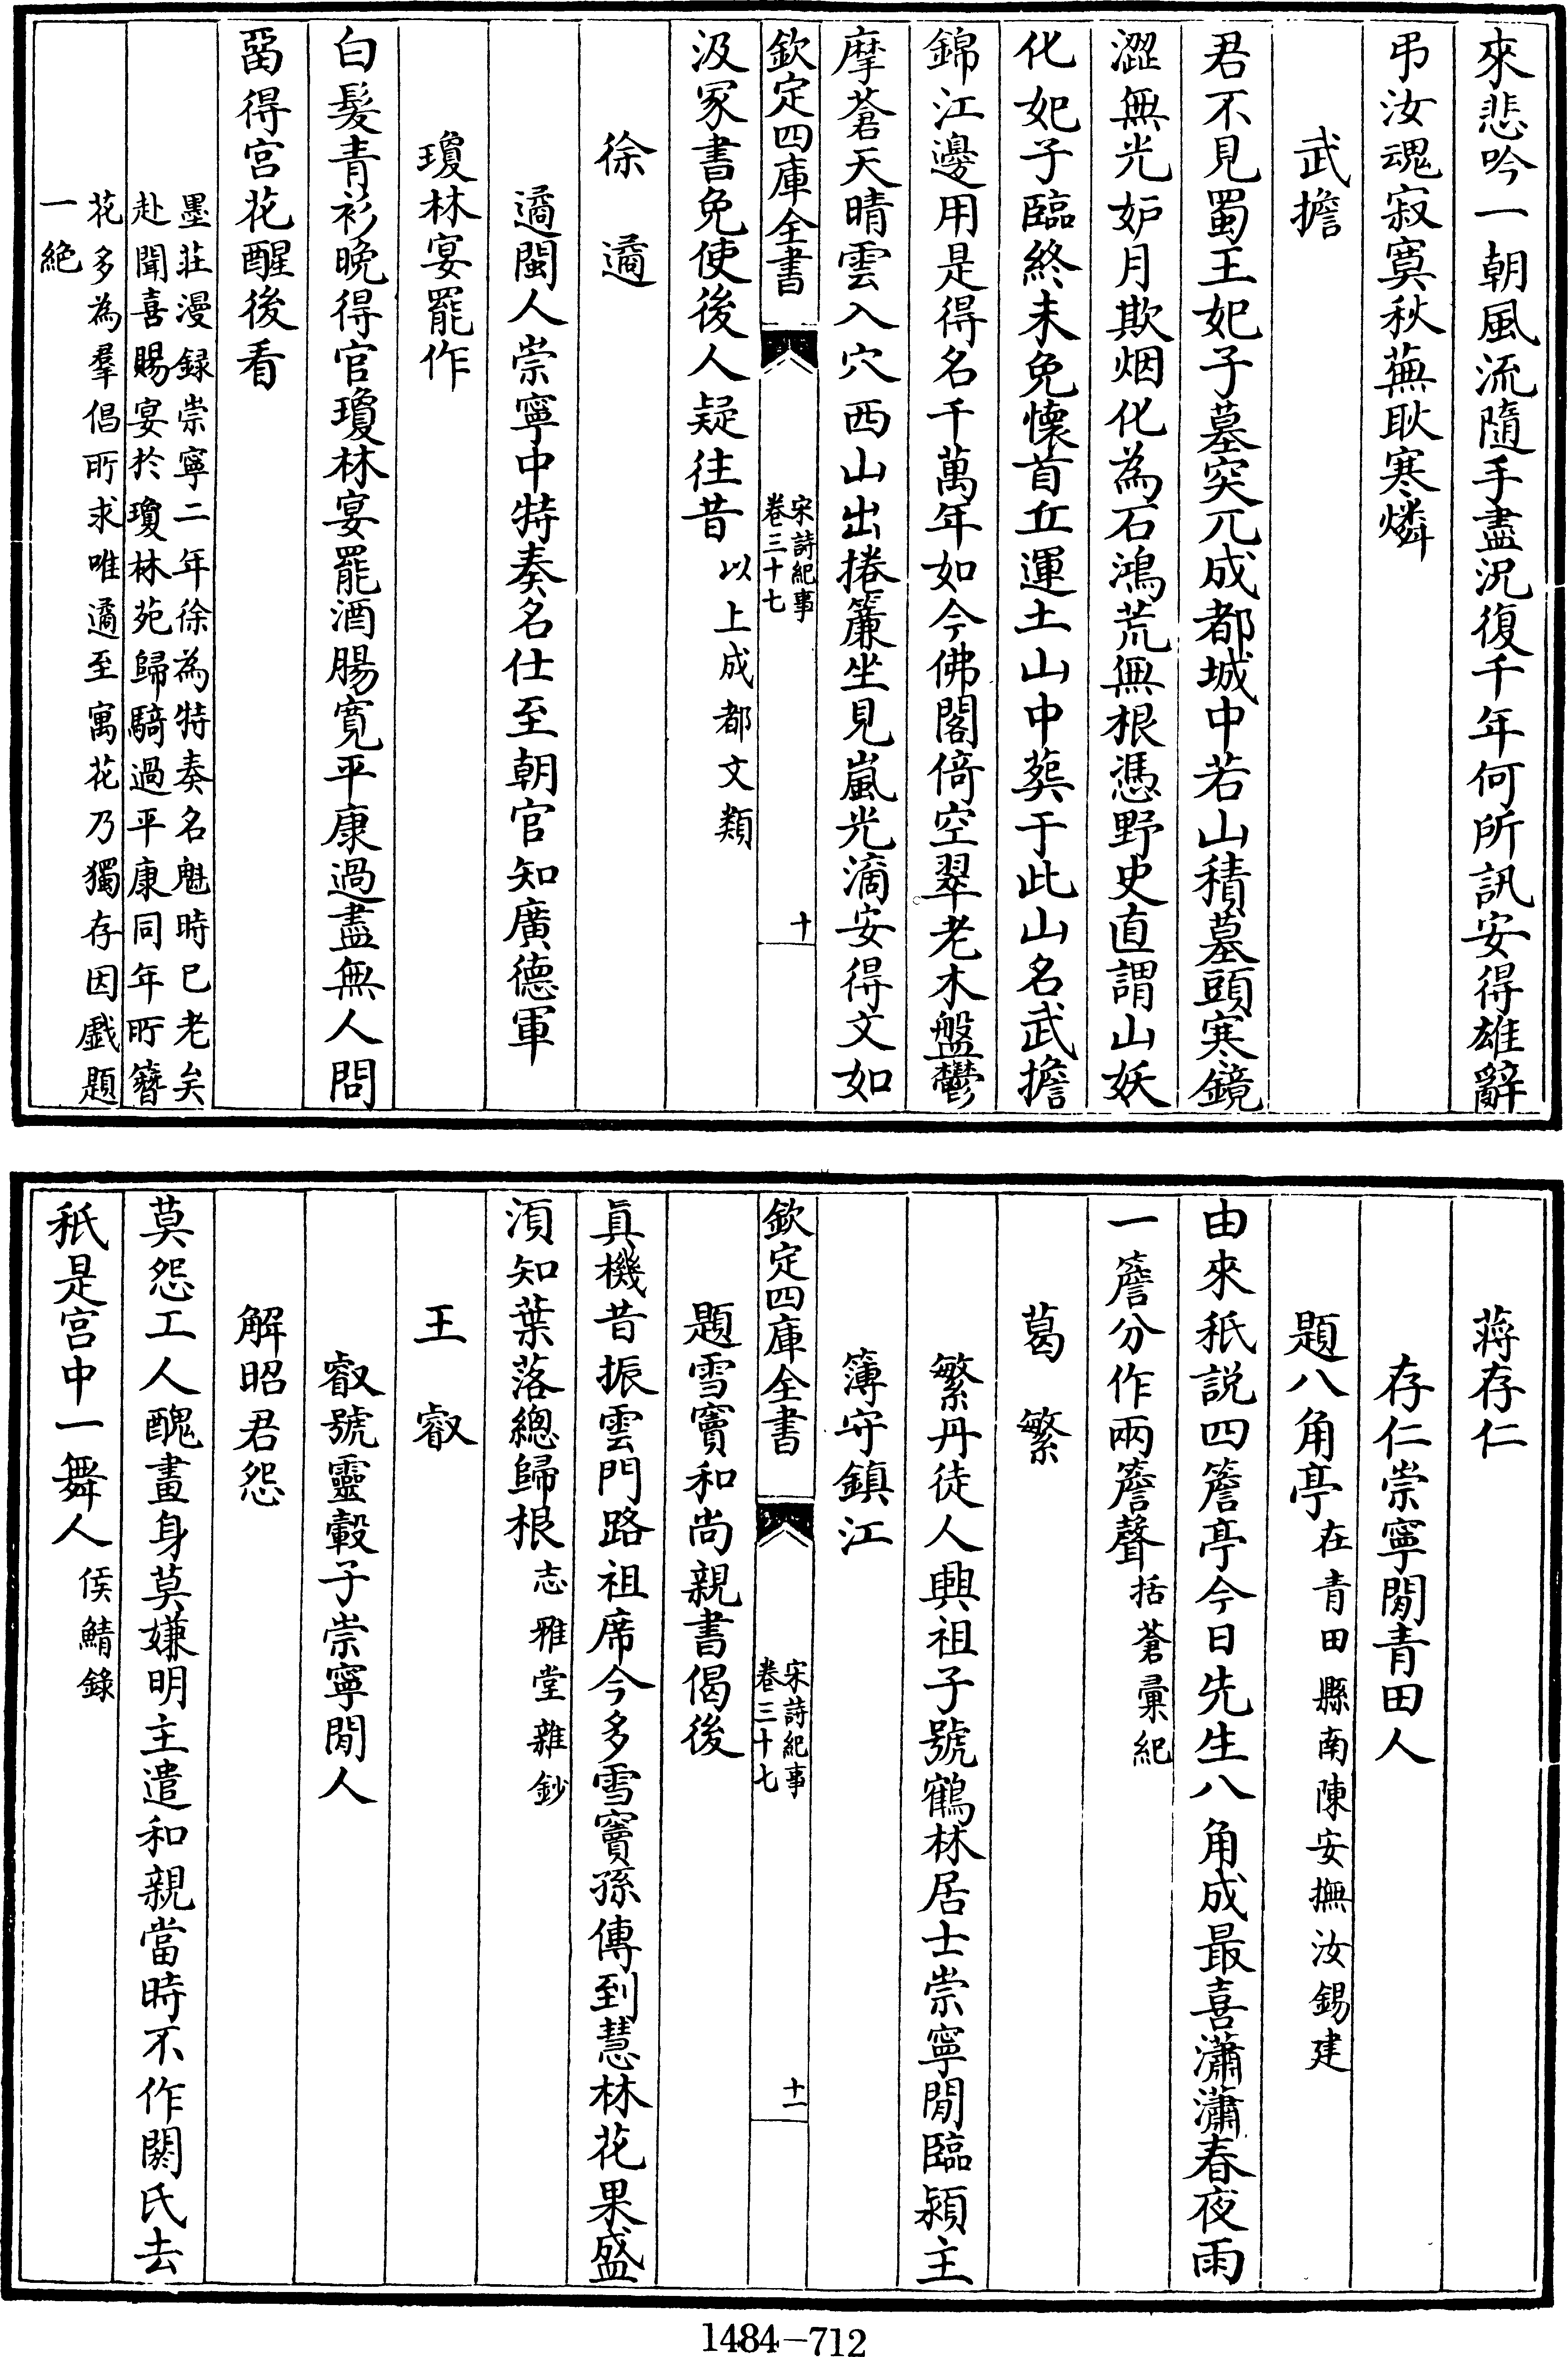 來悲吟一朝風流隨手盡況復千年何所訊安得雄辭
弔汝魂寂寞秋蕪耿寒燐
武擔
君不見蜀王妃子墓突兀成都城中若山積墓頭寒鏡
澀無光妒月欺烟化為石鴻荒無根憑野史直謂山妖
化妃子臨終未免懷首丘運土山中葬于此山名武擔
錦江邊用是得名千萬年如今佛閣倚空翠老木盤鬱
摩蒼天晴雲入穴西山出捲簾坐見嵐光滴安得文如
欽定四庫全書
宋詩紀事
卷三十七
十
汲冢書免使後人疑往昔以上成都文類
徐遹
遹閩人崇寧中特奏名仕至朝官知廣德軍
瓊林宴罷作
白髮青衫晚得官瓊林宴罷酒腸寬平康過盡無人問
留得宮花醒後看
墨莊漫録崇寧二年徐為特奏名魁時已老矣
赴聞喜賜宴於瓊林苑歸騎過平康同年所簪
花多為羣倡所求唯遹至寓花乃獨存因戲題
一絶
蔣存仁
存仁崇寧閒青田人
題八角亭在青田縣南陳安撫汝錫建
由來秖説四簷亭今日先生八角成最喜瀟瀟春夜雨
一簷分作兩簷聲括蒼彙紀
葛繁
繁丹徒人興祖子號鶴林居士崇寧閒臨潁主
簿守鎮江
欽定四庫全書
宋詩紀事
卷三十七
十一
題雪竇和尚親書偈後
真機昔振雲門路祖席今多雪竇孫傳到慧林花果盛
須知葉落總歸根志雅堂雜鈔
王叡
叡號靈轂子崇寧閒人
解昭君怨
莫怨工人醜畫身莫嫌明主遣和親當時不作閼氏去
秖是宮中一舞人侯鯖錄
1484—712